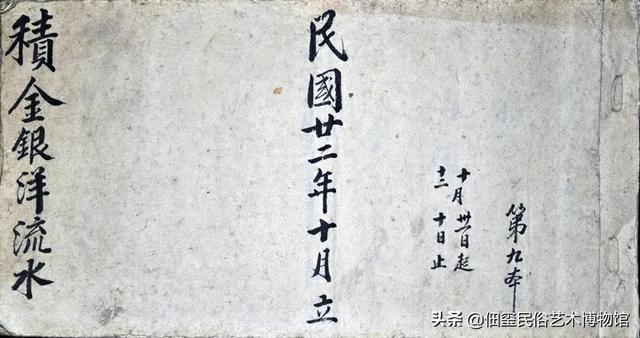 第九夲
十月卅一日起
十二十日止
民國廿二年十月立
積金銀洋流水
头条 @佃璽民俗艺术博物馆